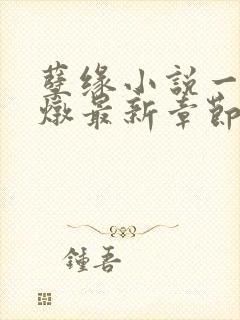 孽缘小説一
燉最新章節
鍾吾